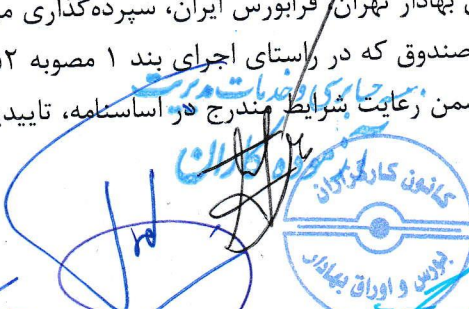 بهادار تهران، فرابورس ایران، سپرده‌گذاری
صندوق که در راستای اجرای بند ۱ مصوبه
رعایت شرایط مندرج در اساسنامه،
خدمات مدیریت
کانون کارگزاران
بورس و اوراق بهادار